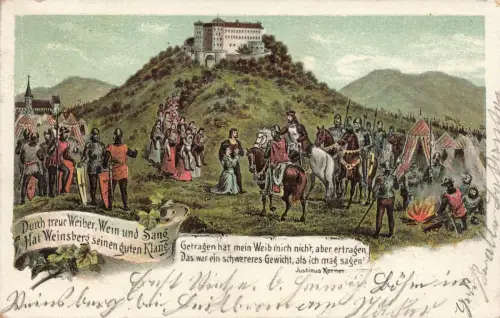 Durch treue Weiber, Wein und Sang
Hat Weinsberg seinen guten Klang.
Getragen hat mein Weib mich nicht, aber ertragen,
Das war ein schwereres Gewicht, als ich mag sagen!
Justinus Kerner.
Weinsberg bei Heilbronn am